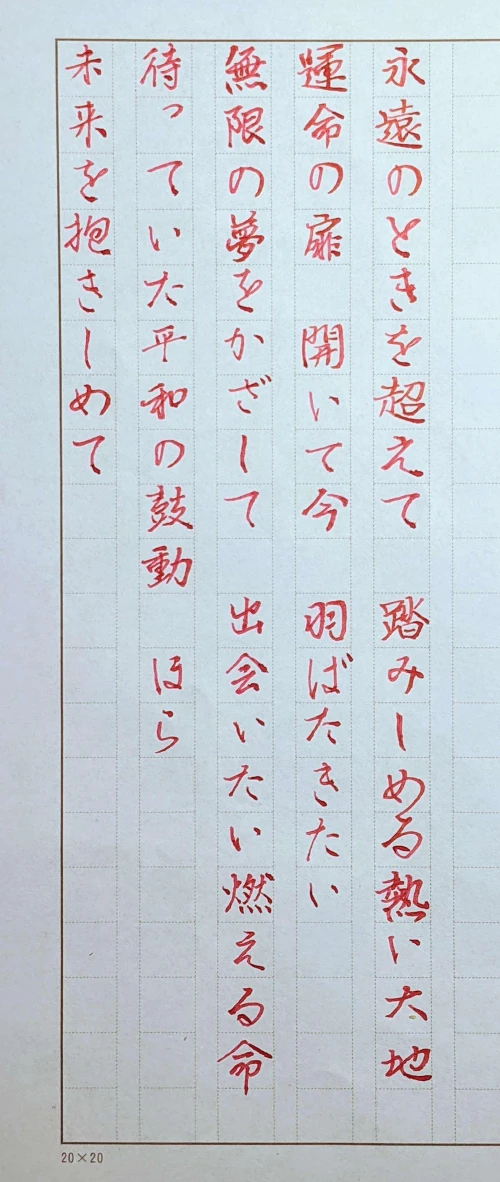 永遠のときを超えて　踏みしめる熱い大地
運命の扉　開いて今　羽ばたきたい
無限の夢をかざして　出会いたい燃える命
待っていた平和の鼓動　ほら
未来を抱きしめて
20×20